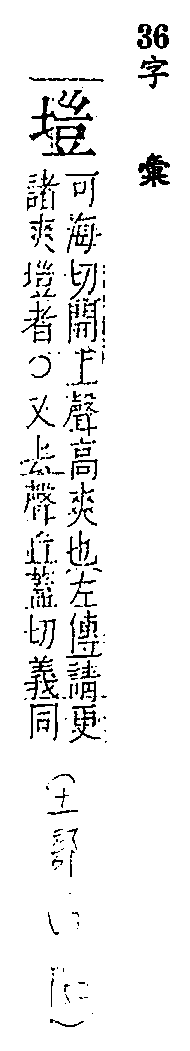 36字彙
塏
可海切開上聲高爽也左傳請更
諸爽塏者○又去聲丘蓋切義同
(土部